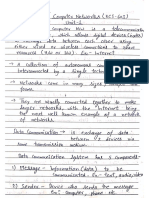 Computer Networks (KCS-603)
Unit-1
Computer Network is a telecommunication
which allows digital devices (nodes)
to exchange data between each other using
either wired or wireless connections to share
resources. Ex- Internet
→ A collection of autonomous computers
interconnected by a single technology
→ Networks come in many sizes, shapes and
forms
→ They are usually connected together to make
larger networks, with the Internet being
the most well known example of a network
of networks.
Data Communication :- exchange of data
between devices via
some transmission medium.
Data Communication System has 5 components-
1) Message - Information (data) to be
communicated. Ex- text, audio, video
2) Sender - Device who sends the message
Ex- Computer, phone etc